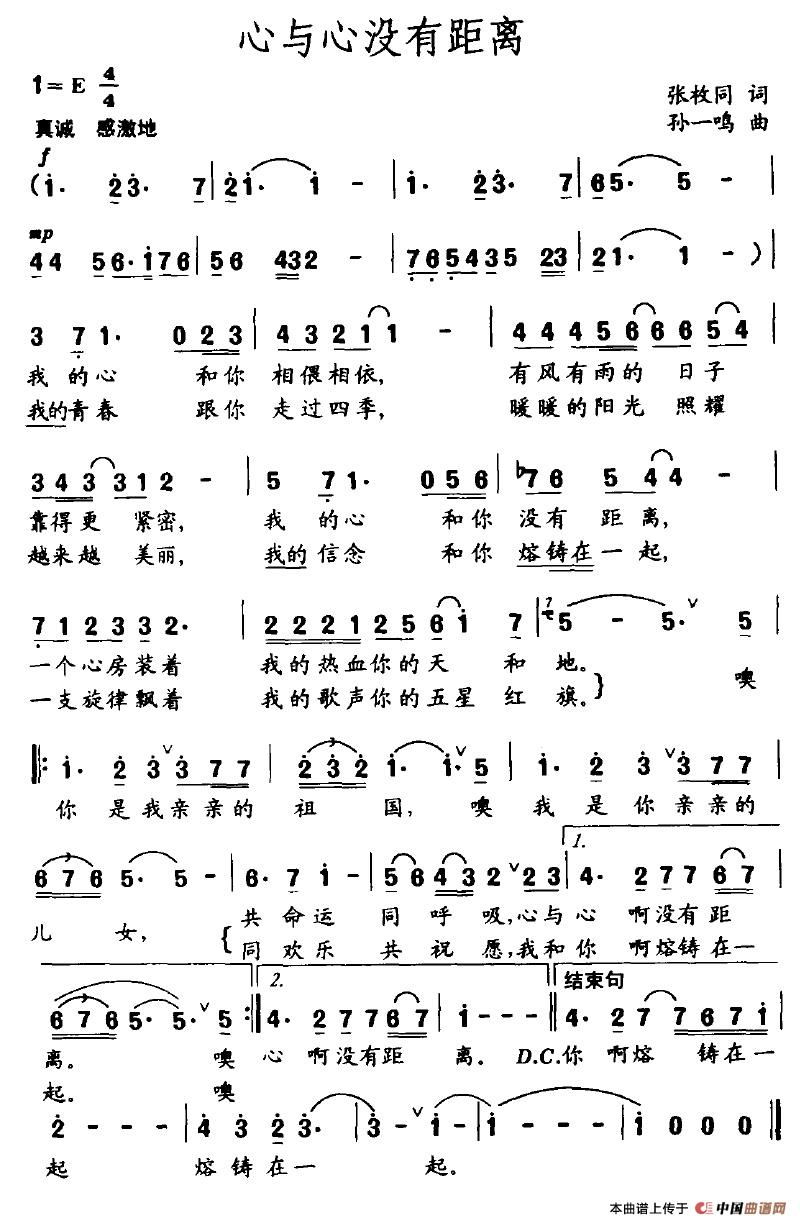 心与心没有距离
1=E 4/4
张枚同 词
真诚 感激地
孙一鸣 曲
f
(i· 23· 7 | 2i· i - | i· 23· 7 | 65· 5 - |
mp
44 56·i76 | 56 432 - | 765435 23 | 21· 1 - )|
3 71· 023 | 43211 - | 44456 6654 |
我 的心 和你 相偎相依, 有风有雨的 日子
我的青春 跟你 走过四季, 暖暖的阳光 照耀
343 312 - | 5 71· 056 | b76 544 - |
靠得更 紧密, 我 的心 和你 没有 距离,
越来越 美丽, 我的信念 和你 熔铸在一起,
712332· | 2221256i 7 | 5 - 5· ∨ 5 |
一个心房装着 我的热血你的天 和 地。 噢
一支旋律飘着 我的歌声你的五星 红 旗。
‖: i· 2 3 ∨ 377 | 232 i· i· ∨ 5 | i· 2 3 ∨ 377 |
你 是我亲亲的 祖 国, 噢 我 是你 亲亲的
1.
676 5· 5 - | 6· 7 i - | 56432 ∨ 23 | 4· 27767 |
儿 女, 共命运 同呼 吸,心与心 啊没有距
同欢乐 共祝 愿,我和你 啊熔铸在一
2. 结束句
676 5· 5· ∨ 5 :‖ 4· 27767 | i - - - ‖ 4· 27 767i |
离。 噢 心 啊没有距 离。 D.C.你 啊熔 铸在一
起。 噢
2 - - - | 4 3 2 3· | 3 - ∨ i - | i - - - | i 0 0 0 ‖
起 熔铸在一 起。
本曲谱上传于 中国曲谱网